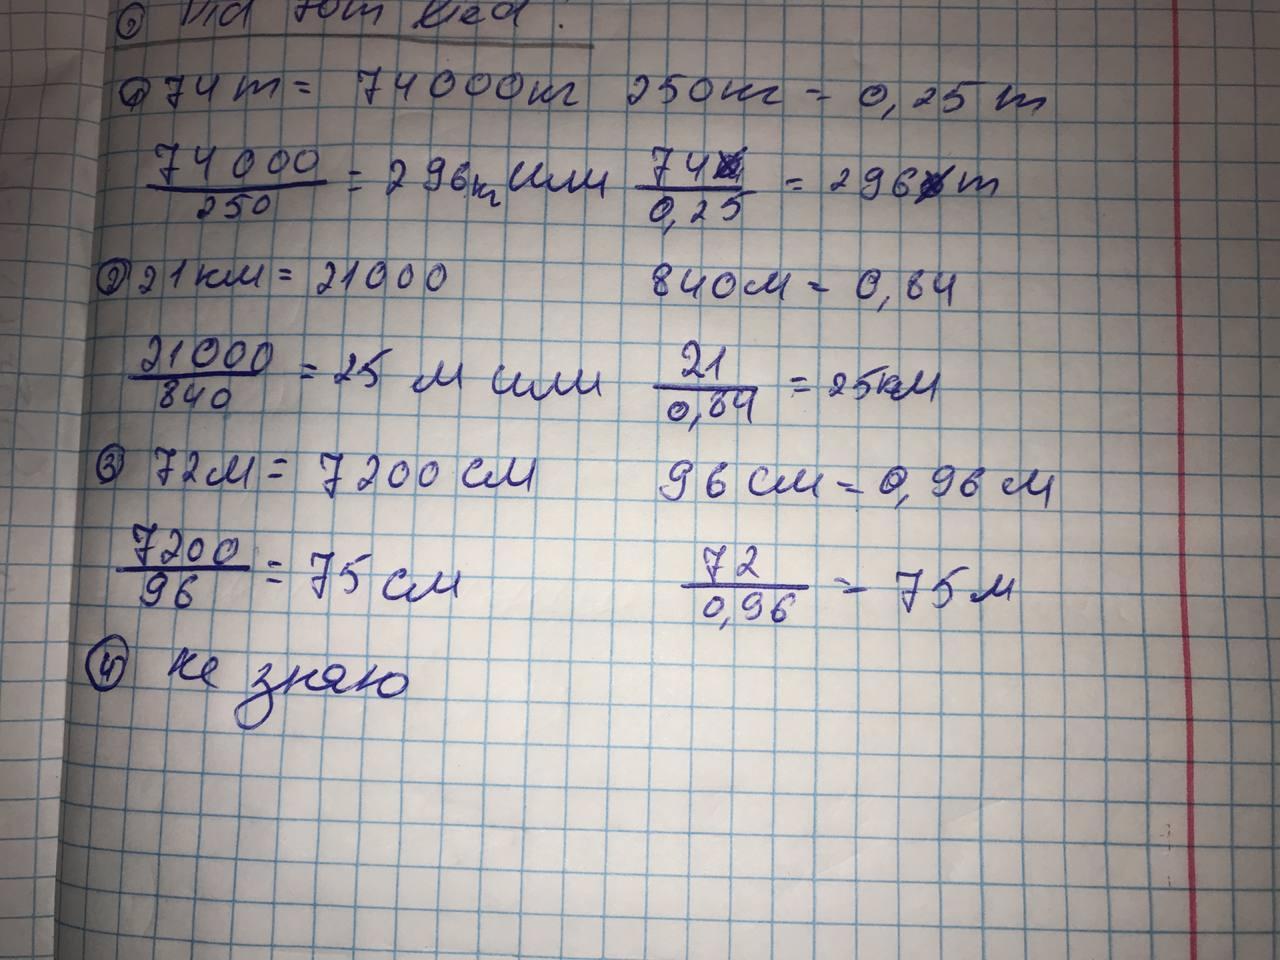 ① 74 т = 74000 кг 250 кг = 0,25 т
74000/250 = 296 кг или 74/0,25 = 296 т
② 21 км = 21000 840 м = 0,84
21000/840 = 25 м или 21/0,84 = 25 км
③ 72 м = 7200 см 96 см = 0,96 м
7200/96 = 75 см 72/0,96 = 75 м
④ не знаю